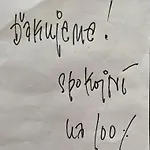 Ďakujeme!
spokojní
na 100%